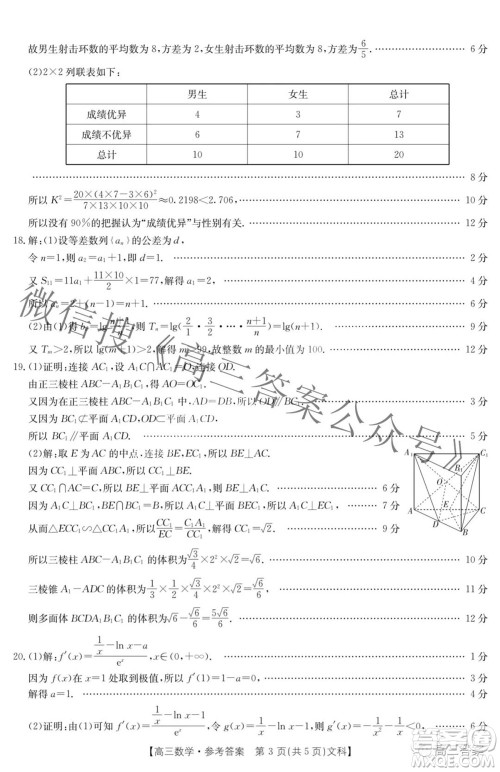 故男生射击环数的平均数为8,方差为2,女生射击环数的平均数为8,方差为6/5. 6分
(2)2×2列联表如下:
男生 女生 总计
成绩优异 4 3 7
成绩不优异 6 7 13
总计 10 10 20
8分
所以K²=20×(4×7-3×6)²/(7×13×10×10)≈0.2198<2.706, 10分
所以没有90%的把握认为“成绩优异”与性别有关. 12分
18.解:(1)设等差数列{aₙ}的公差为d,
令n=1,则a₂=a₁+1,所以d=1. 2分
又S₁₁=11a₁+(11×10)/2×1=77,解得a₁=2, 4分
所以aₙ=2+(n-1)=n+1. 6分
(2)由(1)得bₙ=lg (n+1)/n,则Tₘ=lg(2/1·3/2·…·(n+1)/n)=lg(n+1). 9分
又Tₘ>2,所以lg(m+1)>2,解得m>99,故整数m的最小值为100. 12分
19.(1)证明:连接AC₁,设A₁C∩AC₁=O,连接OD.
由正三棱柱ABC-A₁B₁C₁,得AO=OC₁. 3分
又因为在正三棱柱ABC-A₁B₁C₁中,AD=DB,所以OD∥BC₁.
又因为BC₁⊄平面A₁CD,OD⊂平面A₁CD,
所以BC₁∥平面A₁CD. 5分
(2)解:取E为AC的中点,连接BE,EC₁,所以BE⊥AC.
因为CC₁⊥平面ABC,所以CC₁⊥BE.
又CC₁∩AC=C,所以BE⊥平面ACC₁A₁,所以BE⊥A₁C. 6分
因为A₁C⊥BC₁,BE∩BC₁=B,所以A₁C⊥平面BEC₁,所以A₁C⊥EC₁. 7分
从而△ECC₁∽△CC₁A₁,所以CC₁/EC=C₁A₁/CC₁,所以CC₁=√2. 8分
所以三棱柱ABC-A₁B₁C₁的体积为√3/4×2²×√2=√6. 9分
三棱锥A₁-ADC的体积为1/3×1/2×√3/4×2²×√2=√6/6. 11分
则多面体BCDA₁B₁C₁的体积为√6-√6/6=5√6/6. 12分
20.(1)解:f′(x)=(1/x-ln x-a)/eˣ,x∈(0,+∞). 1分
因为f(x)在x=1处取到极值,所以f′(1)=0, 3分
解得a=1. 4分
(2)证明:由(1)可知f′(x)=(1/x-ln x-1)/eˣ,令g(x)=1/x-ln x-1,则g(1)=0,
【高三数学·参考答案 第3页(共5页)文科】
微信搜《高三答案公众号》